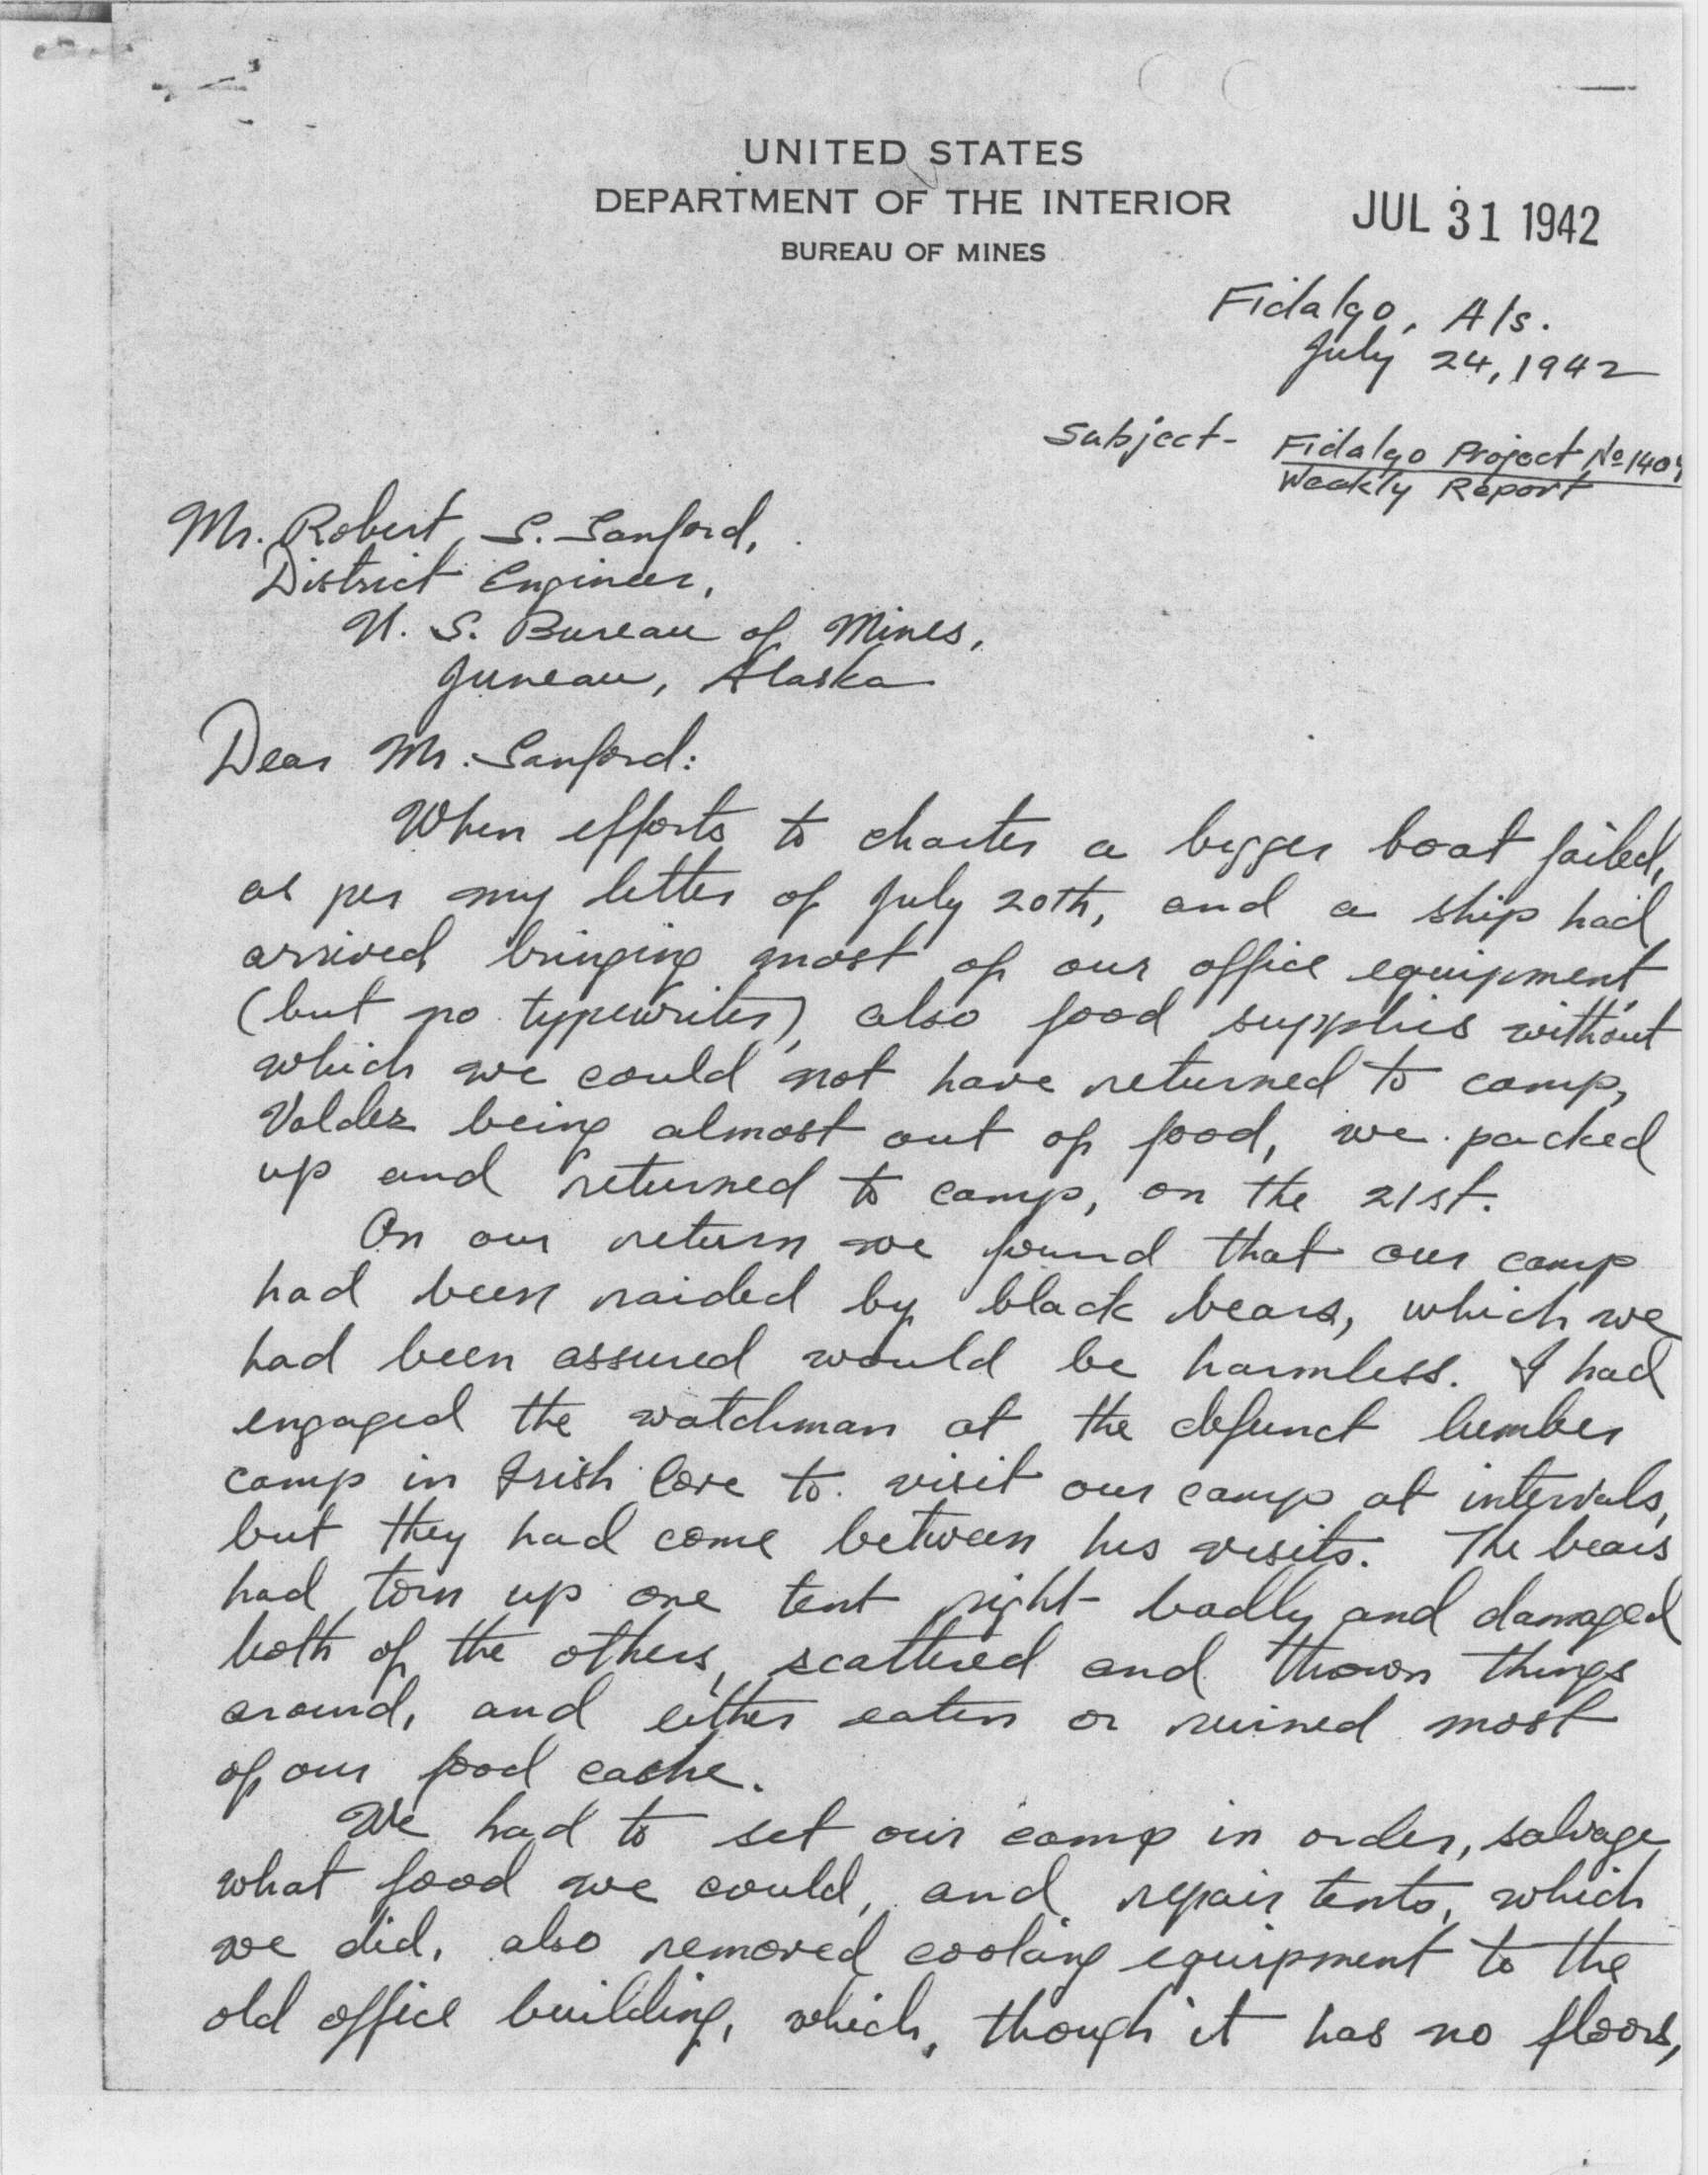 UNITED STATES
DEPARTMENT OF THE INTERIOR
BUREAU OF MINES
JUL 31 1942
Fidalgo, Als.
July 24, 1942
Subject- Fidalgo Project No 140
Weekly Report
Mr. Robert S. Sanford,
District Engineer,
U. S. Bureau of Mines,
Juneau, Alaska
Dear Mr. Sanford:
When efforts to charter a bigger boat failed,
as per my letter of July 20th, and a ship had
arrived bringing most of our office equipment
(but no typewriter), also food supplies without
which we could not have returned to camp,
Valdez being almost out of food, we packed
up and returned to camp, on the 21st.
On our return we found that our camp
had been raided by black bears, which we
had been assured would be harmless. I had
engaged the watchman at the defunct lumber
camp in Irish Cove to visit our camp at intervals,
but they had come between his visits. The bears
had torn up one tent right badly and damaged
both of the others, scattered and thrown things
around, and either eaten or ruined most
of our food cache.
We had to set our camp in order, salvage
what food we could, and repair tents, which
we did, also removed cooking equipment to the
old office building, which, though it has no floors,